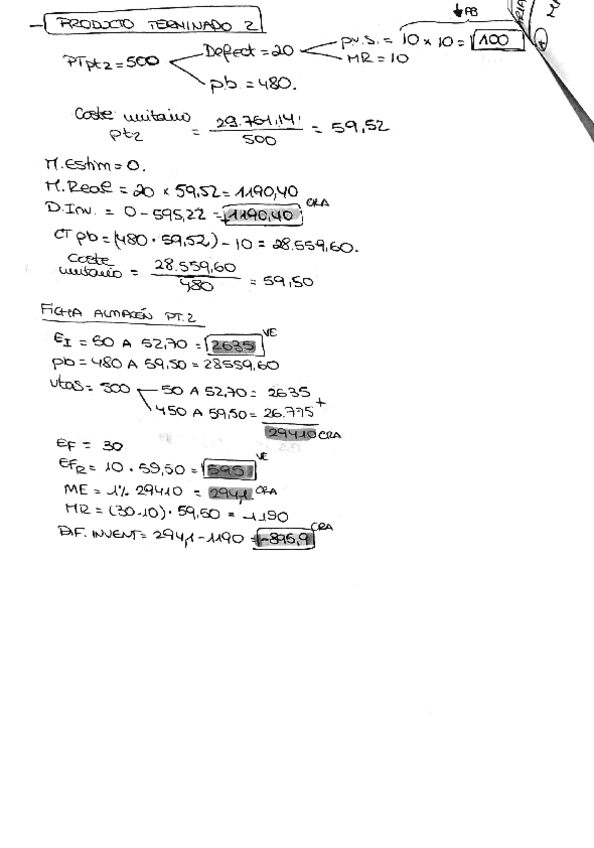 ↓AB
- PRODUCTO TERMINADO 2
PTpt2 = 500
Defect = 20
p.v.s. = 10 x 10 = 100
MR = 10
pb = 480.
Coste unitario pt2 = 29.761,14 / 500 = 59,52
M.Estim = 0.
M.Real = 20 x 59,52 = 1190,40
D.Inv. = 0 - 595,22 = +1190,40 CRA
CT pb = (480 · 59,52) - 10 = 28.559,60.
Coste unitario = 28.559,60 / 480 = 59,50
FICHA ALMACÉN PT.2
EI = 50 A 52,70 = 2635 VE
pb = 480 A 59,50 = 28559,60
Vtas = 500
50 A 52,70 = 2635
450 A 59,50 = 26.775 +
29410 CRA
EF = 30
EFR = 10 · 59,50 = 595 VE
ME = 1% 29410 = 294,1 CRA
MR = (30-10) · 59,50 = 1190
DIF. INVENT = 294,1 - 1190 = -895,9 CRA